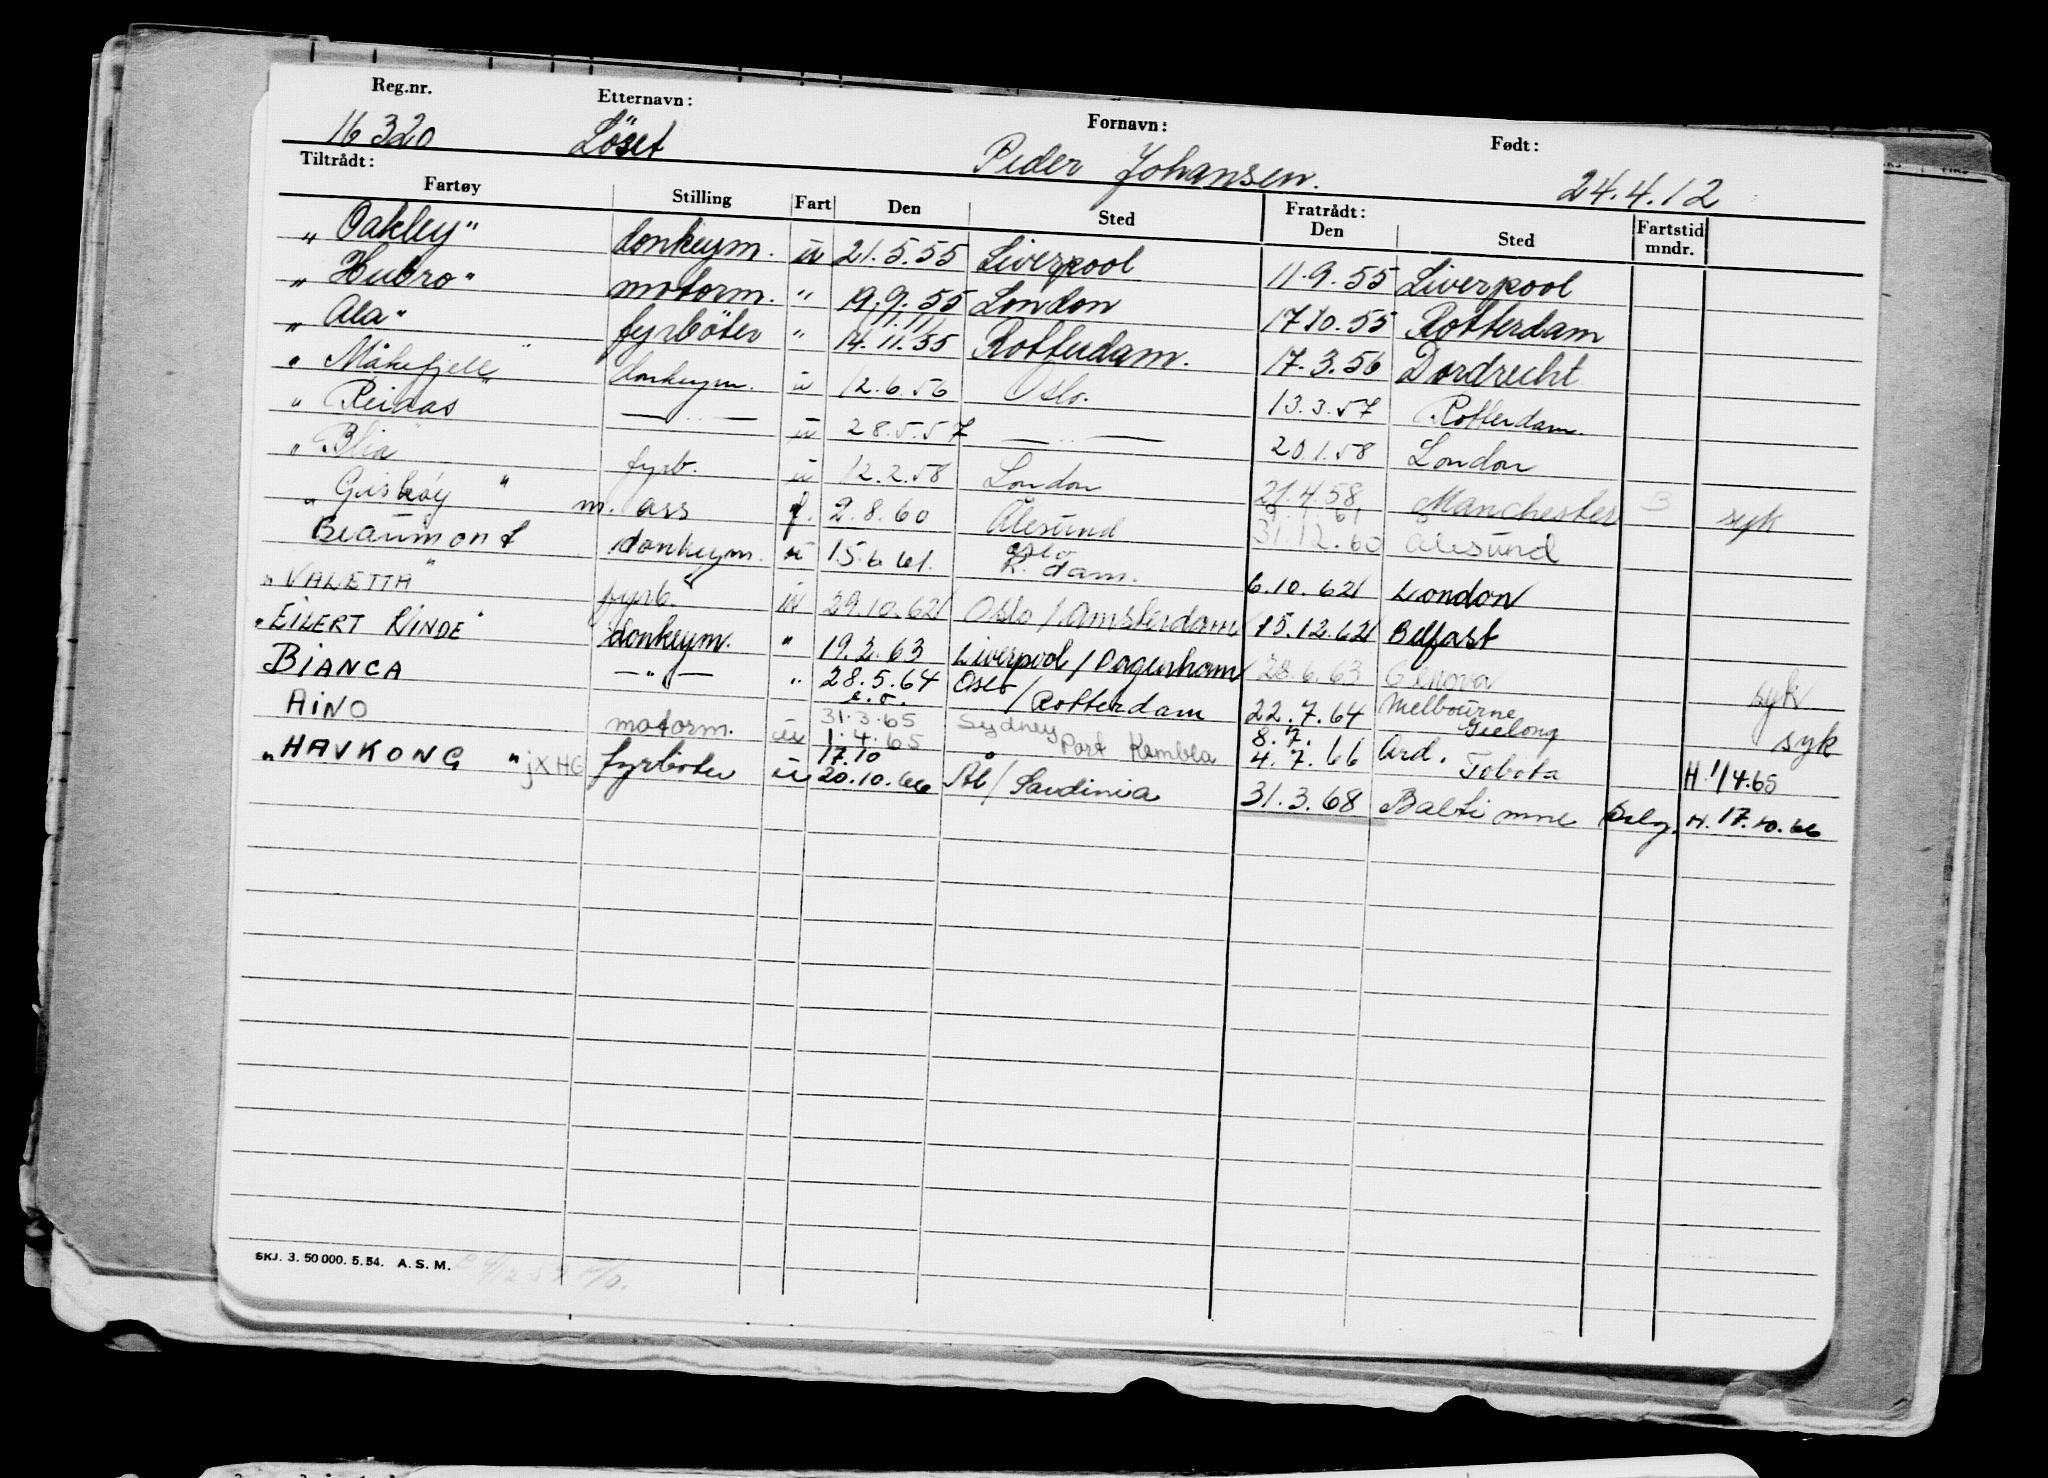 Reg.nr. Etternavn: Fornavn: Født:
16320 Löset Peder Johansen. 24.4.12
Tiltrådt: Fratrådt:
Fartøy Stilling Fart Den Sted Den Sted Fartstid mndr.
"Oakley" donkeym. u 21.5.55 Liverpool 11.9.55 Liverpool
"Hubro" motorm. " 19.9.55 London 17.10.55 Rotterdam
"Ala" fyrböter " 11.11/14.11.55 Rotterdam. 17.3.56 Dordrecht
"Måkefjell" donkeym. u 12.6.56 Oslo. 13.3.57 Rotterdam.
"Reinaas" — " — u 28.5.57 — " — 20.1.58 London
"Blia" fyrb. u 12.2.58 London 21.4.58 Manchester 3 syk
"Guskøy" m. ass f. 2.8.60 Ålesund 31.12.60 Ålesund
Beaumont donkeym. u 15.6.61. Oslo R.dam. 6.10.62 London
"VALETTA" fyrb. u 29.10.62 Oslo/Amsterdam 15.12.62 Belfast
"EILERT RINDE" donkeym. " 19.2.63 Liverpool/Dagenham 28.6.63 Genova syk
BIANCA — " — " 28.5.64 Oslo/Rotterdam 22.7.64 Melbourne Geelong syk
AINO motorm. u 31.3.65 1.4.65 Sydney Port Kembla 8.7. 4.7.66 Ard. Tobata H. 1/4.65
"HAVKONG" jXHG fyrböter u 17.10 20.10.66 Ål/Sardinia 31.3.68 Baltimore H. 17.10.66
SKJ. 3. 50 000. 5. 54. A. S. M.